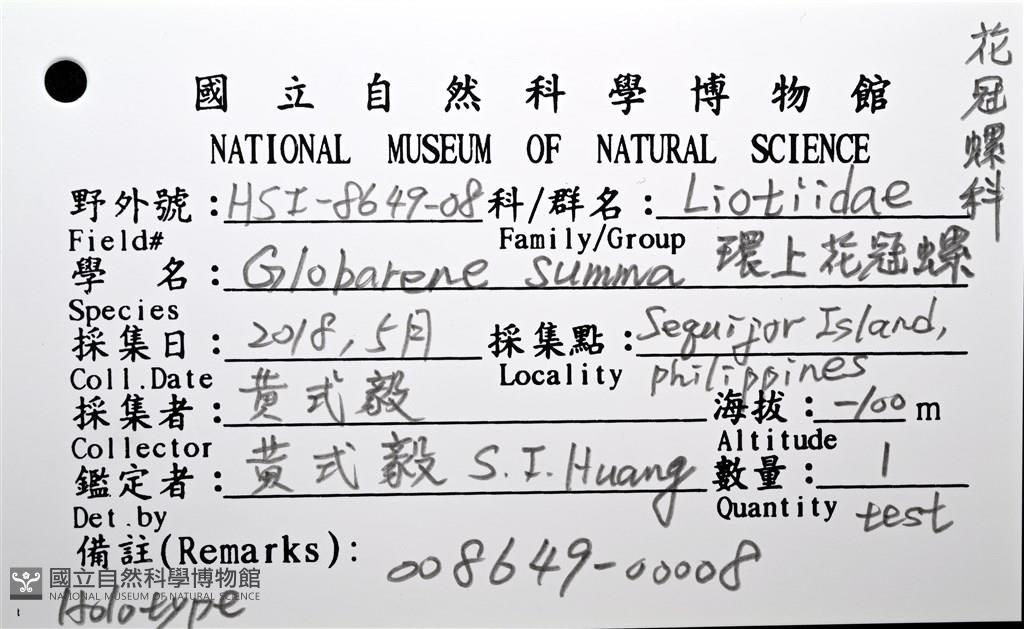 花冠螺科
國立自然科學博物館
NATIONAL MUSEUM OF NATURAL SCIENCE
野外號：HSI-8649-08 科/群名：Liotiidae
Field# Family/Group
學名：Globarene summa 環上花冠螺
Species
採集日：2018，5月 採集點：Sequijor Island,
Coll.Date Locality philippines
採集者：黃式毅 海拔：-100 m
Collector Altitude
鑑定者：黃式毅 S.I.Huang 數量：1
Det.by Quantity test
備註(Remarks)：008649-00008
國立自然科學博物館
NATIONAL MUSEUM OF NATURAL SCIENCE
Holotype